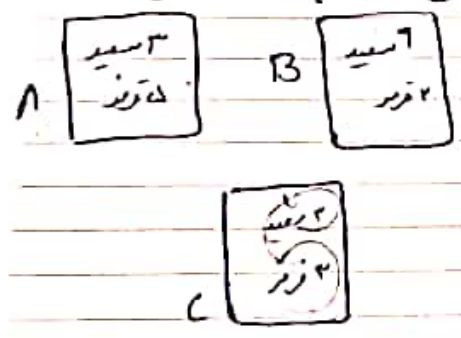 A
۳ سفید
۵ قرمز
B
۶ سفید
۲ قرمز
C
۲ سفید
۳ قرمز